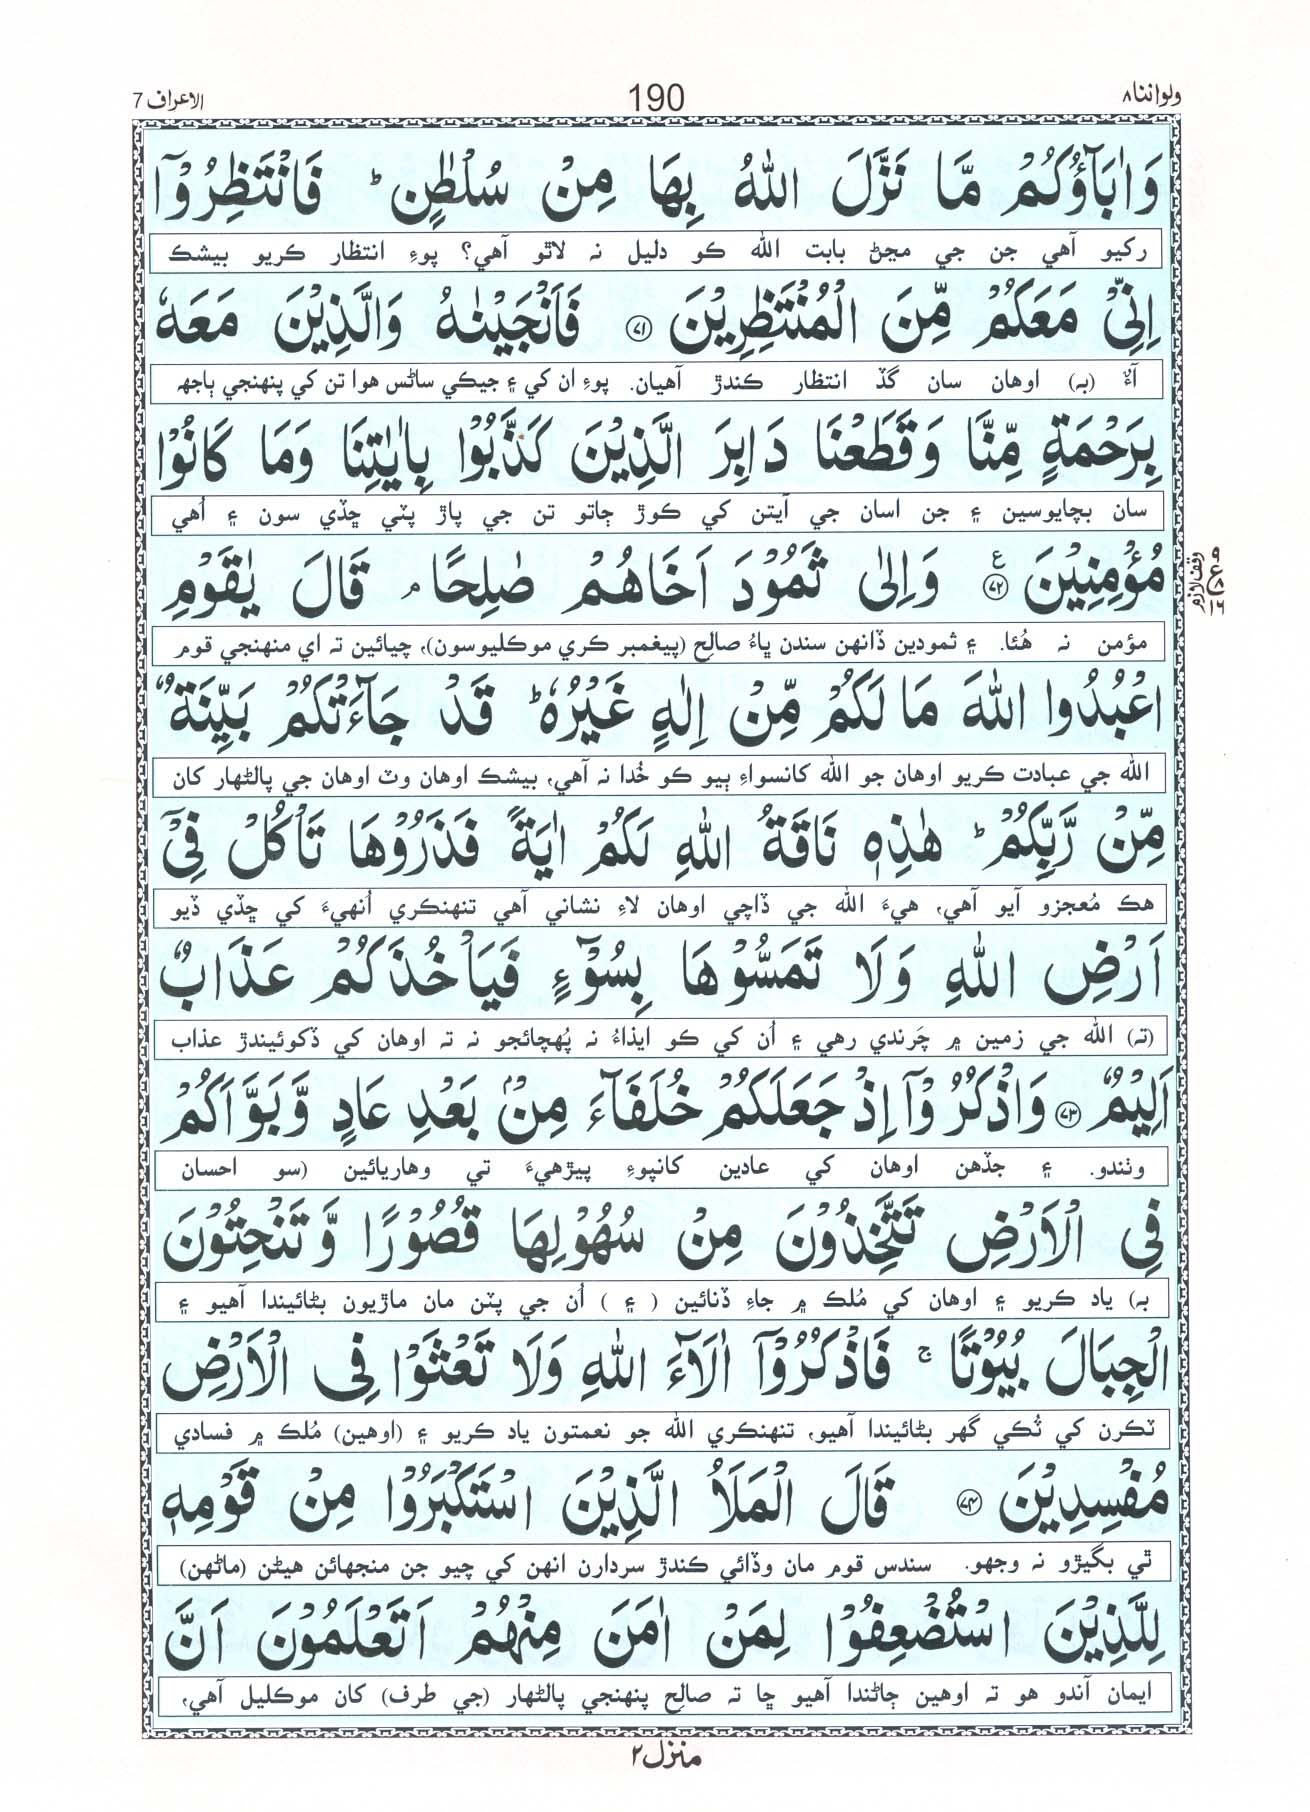 ولواننا٨ 190 الاعراف 7
وَاٰبَآؤُكُمْ مَّا نَزَّلَ اللّٰهُ بِهَا مِنْ سُلْطٰنٍ ؕ فَانْتَظِرُوْۤا
رکيو آهي جن جي مڃڻ بابت الله ڪو دليل نہ لاٿو آهي؟ پوءِ انتظار ڪريو بيشڪ
اِنِّىْ مَعَكُمْ مِّنَ الْمُنْتَظِرِيْنَ ﴿۷۱﴾ فَاَنْجَيْنٰهُ وَالَّذِيْنَ مَعَهٗ
آءٌ (بہ) اوهان سان گڏ انتظار ڪندڙ آهيان. پوءِ ان کي ۽ جيڪي ساڻس هوا تن کي پنهنجي ٻاجهہ
بِرَحْمَةٍ مِّنَّا وَقَطَعْنَا دَابِرَ الَّذِيْنَ كَذَّبُوْا بِاٰيٰتِنَا وَمَا كَانُوْا
سان بچايوسين ۽ جن اسان جي آيتن کي ڪوڙ ڄاتو تن جي پاڙ پٽي ڇڏي سون ۽ اُهي
مُؤْمِنِيْنَ ﴿۷۲﴾ ع وَاِلٰى ثَمُوْدَ اَخَاهُمْ صٰلِحًا ۘ قَالَ يٰقَوْمِ
وقف لازم
مؤمن نہ هُئا. ۽ ثمودين ڏانهن سندن ڀاءُ صالِح (پيغمبر ڪري موڪليوسون)، چيائين تہ اي منهنجي قوم
اعْبُدُوا اللّٰهَ مَا لَكُمْ مِّنْ اِلٰهٍ غَيْرُهٗ ؕ قَدْ جَآءَتْكُمْ بَيِّنَةٌ
الله جي عبادت ڪريو اوهان جو الله کانسواءِ ٻيو ڪو خُدا نہ آهي، بيشڪ اوهان وٽ اوهان جي پالڻهار کان
مِّنْ رَّبِّكُمْ ؕ هٰذِهٖ نَاقَةُ اللّٰهِ لَكُمْ اٰيَةً فَذَرُوْهَا تَاْكُلْ فِىْۤ
هڪ مُعجزو آيو آهي، هيءَ الله جي ڏاچي اوهان لاءِ نشاني آهي تنهنڪري اُنهيءَ کي ڇڏي ڏيو
اَرْضِ اللّٰهِ وَلَا تَمَسُّوْهَا بِسُوْٓءٍ فَيَاْخُذَكُمْ عَذَابٌ
(تہ) الله جي زمين ۾ چَرندي رهي ۽ اُن کي ڪو ايذاءُ نہ پُهچائجو نہ تہ اوهان کي ڏکوئيندڙ عذاب
اَلِيْمٌ ﴿۷۳﴾ وَاذْكُرُوْۤا اِذْ جَعَلَكُمْ خُلَفَآءَ مِنْۢ بَعْدِ عَادٍ وَّبَوَّاَكُمْ
وٺندو. ۽ جڏهن اوهان کي عادين کانپوءِ پيڙهيءَ تي وهاريائين (سو احسان
فِى الْاَرْضِ تَتَّخِذُوْنَ مِنْ سُهُوْلِهَا قُصُوْرًا وَّتَنْحِتُوْنَ
بہ) ياد ڪريو ۽ اوهان کي مُلڪ ۾ جاءِ ڏنائين ( ۽ ) اُن جي پٽن مان ماڙيون بڻائيندا آهيو ۽
الْجِبَالَ بُيُوْتًا ۚ فَاذْكُرُوْۤا اٰلَآءَ اللّٰهِ وَلَا تَعْثَوْا فِى الْاَرْضِ
ٽڪرن کي ٽُڪي گهر بڻائيندا آهيو، تنهنڪري الله جو نعمتون ياد ڪريو ۽ (اوهين) مُلڪ ۾ فسادي
مُفْسِدِيْنَ ﴿۷۴﴾ قَالَ الْمَلَاُ الَّذِيْنَ اسْتَكْبَرُوْا مِنْ قَوْمِهٖ
ٿي بگيڙو نہ وجهو. سندس قوم مان وڏائي ڪندڙ سردارن انهن کي چيو جن منجهائن هيڻن (ماڻهن)
لِلَّذِيْنَ اسْتُضْعِفُوْا لِمَنْ اٰمَنَ مِنْهُمْ اَتَعْلَمُوْنَ اَنَّ
ايمان آندو هو تہ اوهين ڄاڻندا آهيو ڇا تہ صالِح پنهنجي پالڻهار (جي طرف) کان موڪليل آهي،
منزل٢